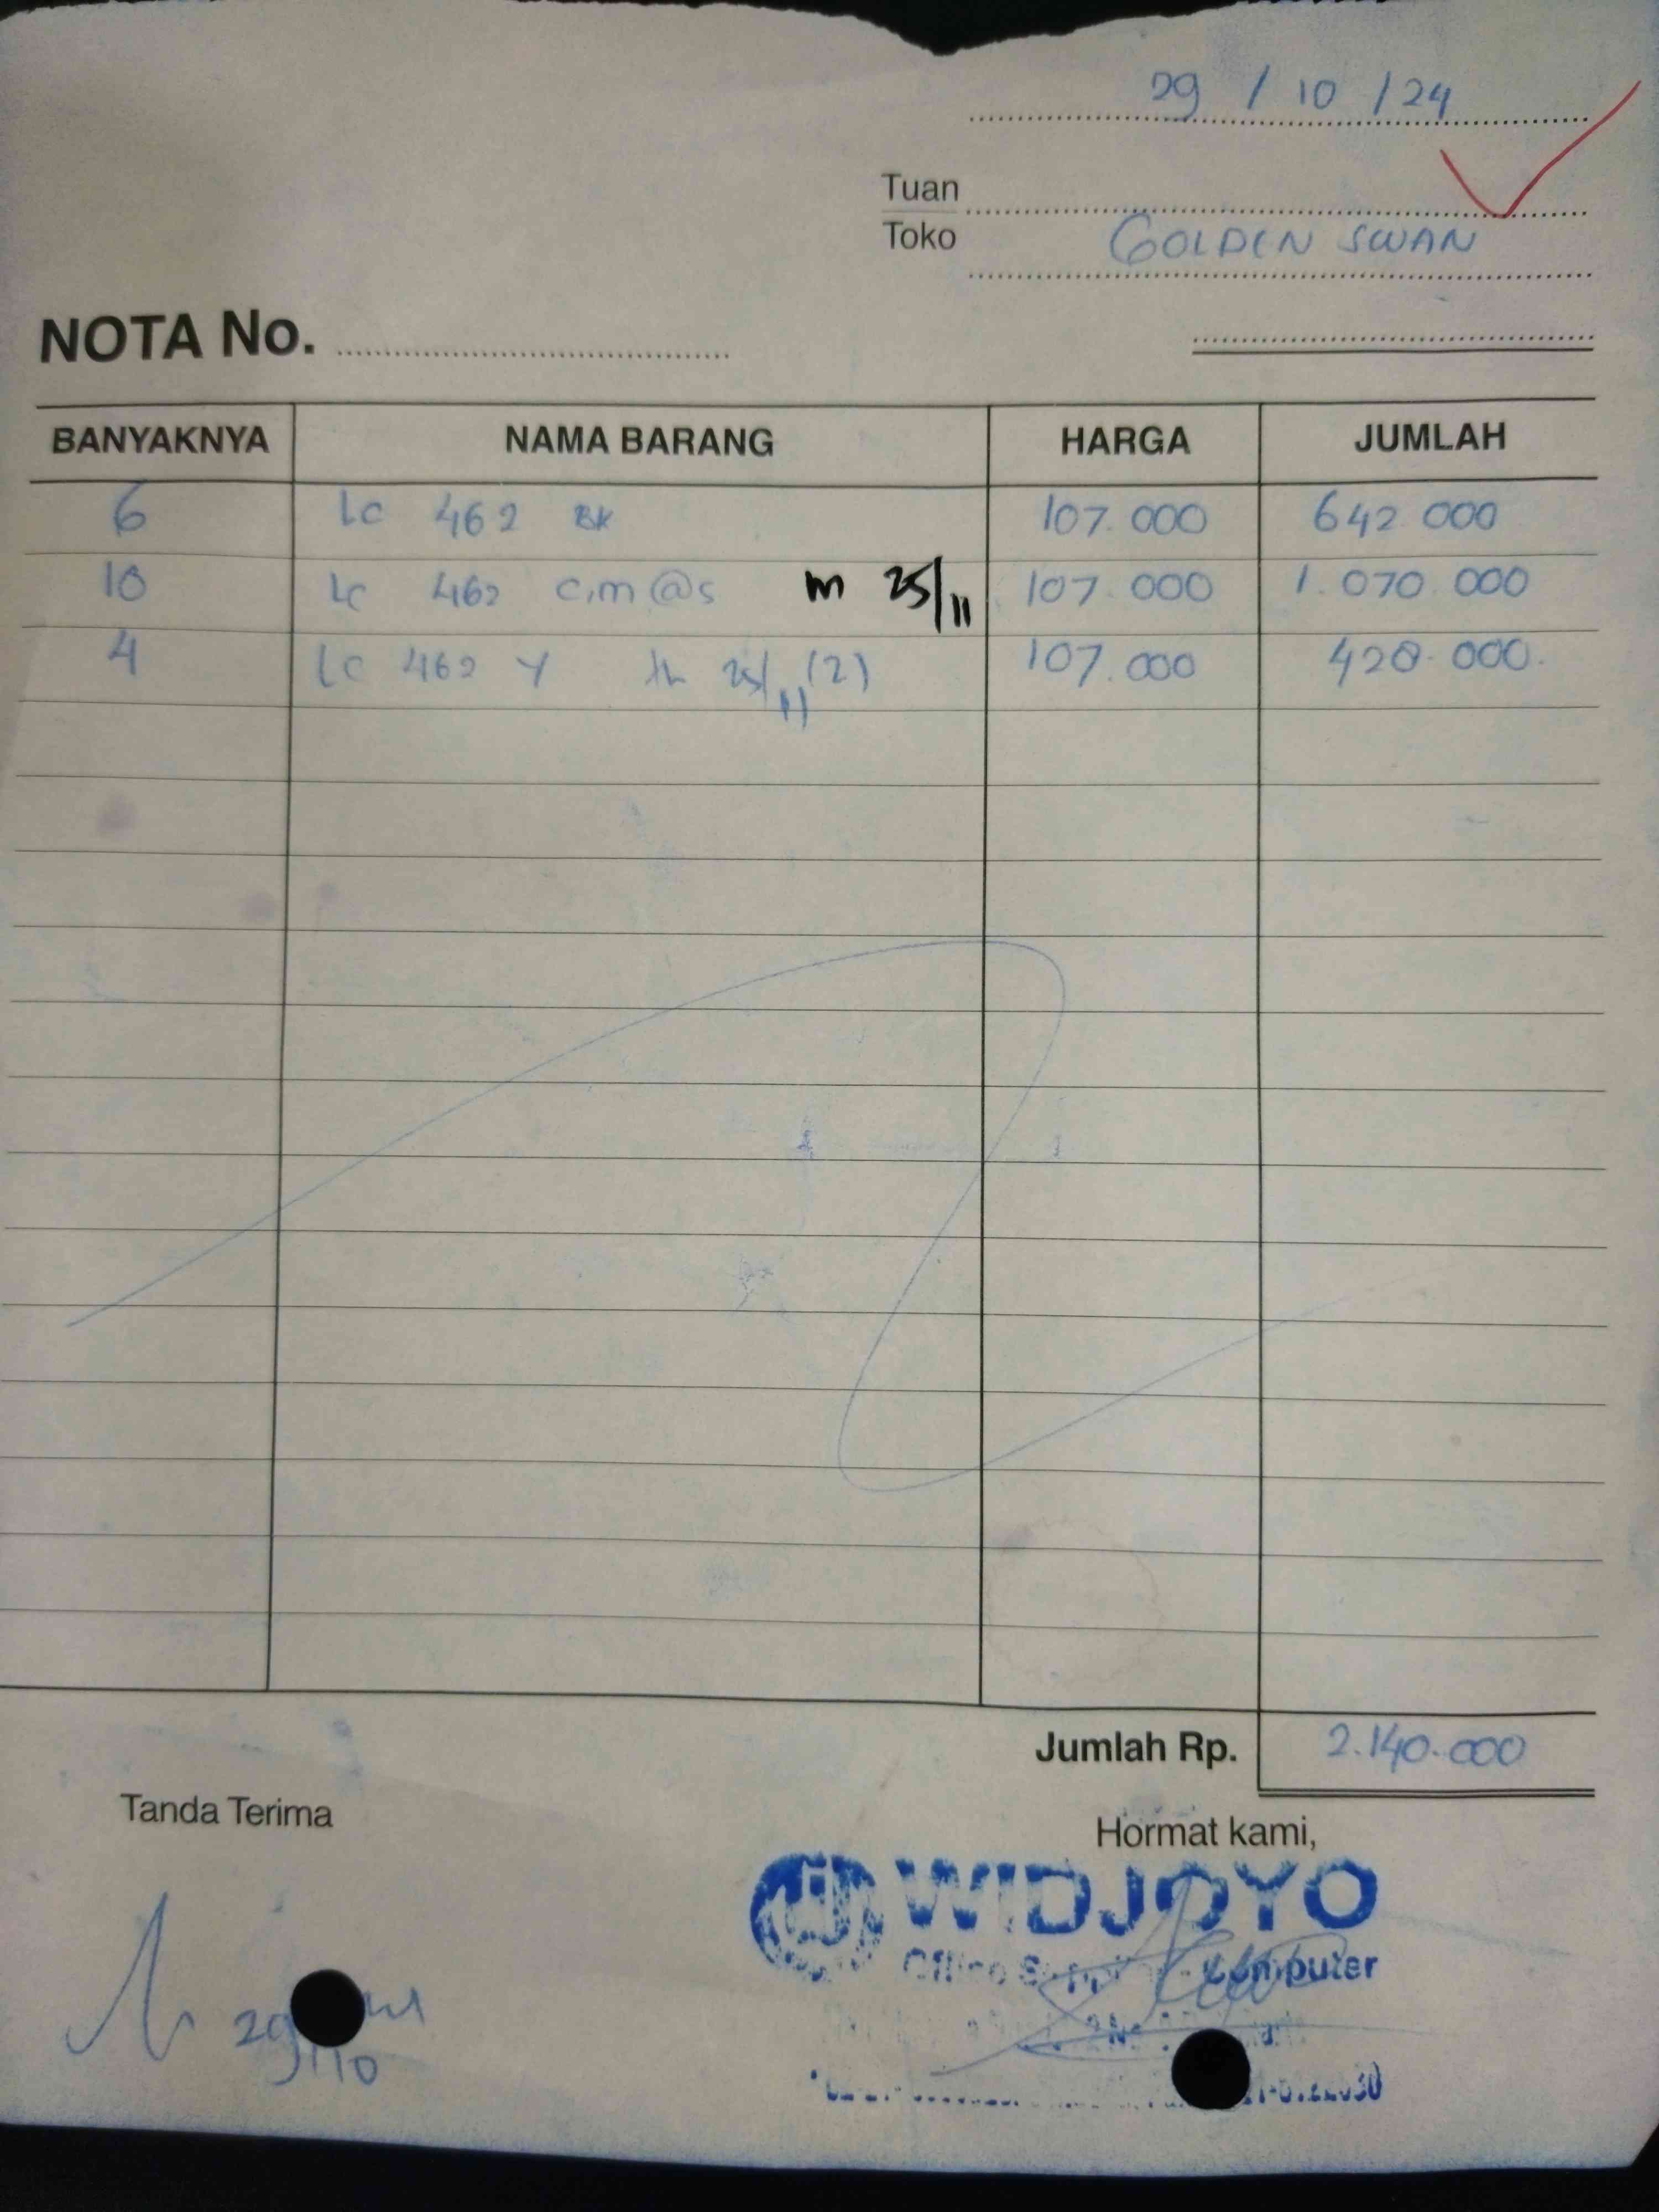 29 / 10 / 24
Tuan
Toko GOLDEN SWAN
NOTA No.
BANYAKNYA NAMA BARANG HARGA JUMLAH
6 LC 462 BK 107.000 642 000
10 LC 462 C,M @5 m 25/11 107.000 1.070.000
4 LC 462 Y 25/11 (2) 107.000 428.000.
Jumlah Rp. 2.140.000
Tanda Terima
Hormat kami,
WIDJOYO
Office Computer
29/10